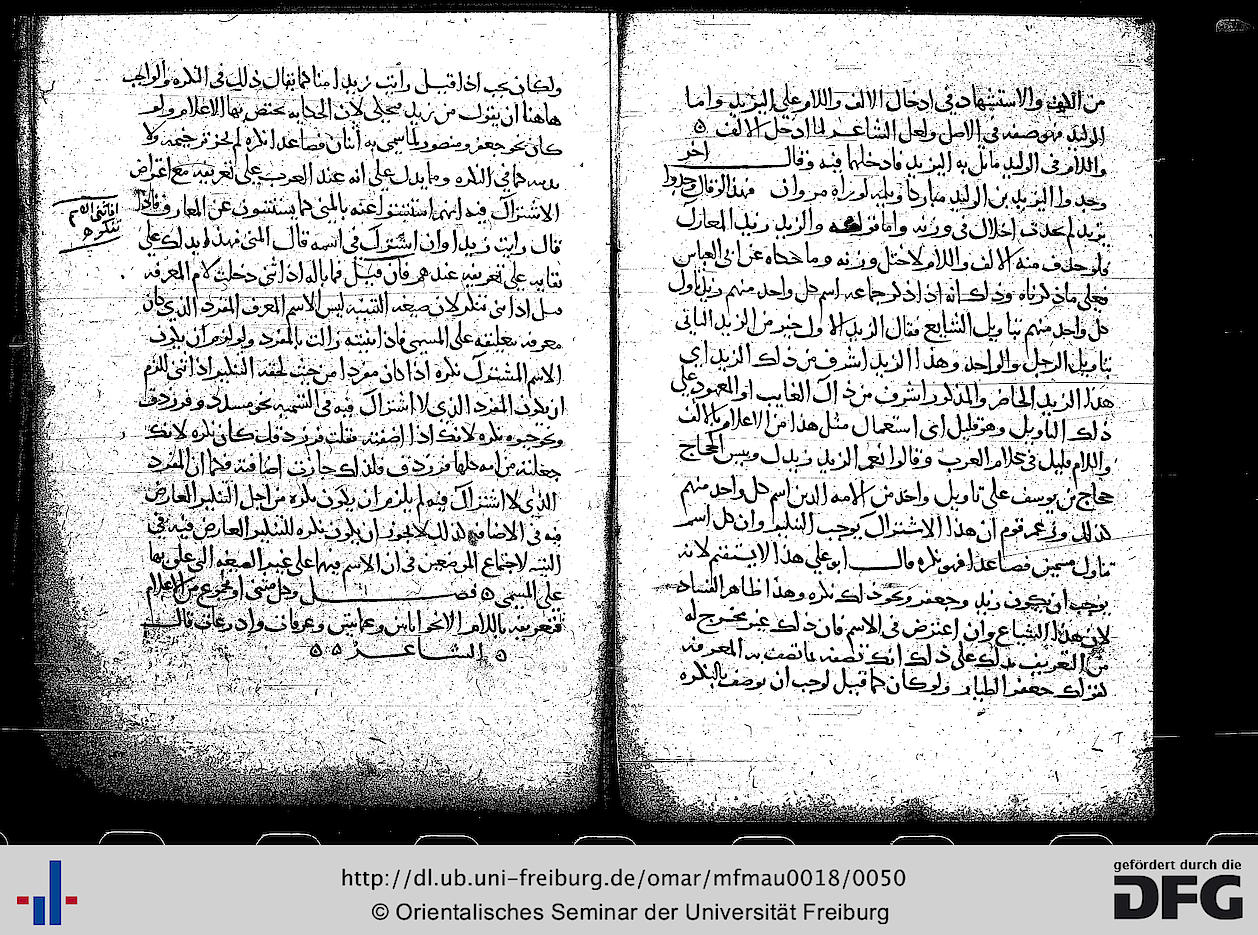 من اللام والاستشهاد في ادخال الالف واللام على اليزيد واما
الوليد فهو صفة في الاصل ولعل الشاعر لما ادخل الالف
واللام في الوليد ماثل به اليزيد فادخلها فيه وقال اخر
وجدوا اليزيد بن الوليد مباركا وزيد مروان فهذا لو قال وجدوا
يزيد لم يحدث اخلال في وزنه واما قوله والزيد زيد المعارك
فلو حذف منه الالف واللام لاختل وزنه وما حكاه عن ابي العباس
فعلى ما ذكرناه وذلك انه اذا ذكر جماعه اسم كل واحد منهم زيد تاول
كل واحد منهم بتاويل الشايع فقال الزيد الاول خير من الزيد الثاني
بتاويل الرجل والواحد وهذا الزيد اشرف من ذلك الزيد اي
هذا الزيد الحاضر والمذكور اشرف من ذاك الغايب او المعهود على
ذلك التاويل وهو قليل اي استعمال مثل هذا من الاعلام بالالف
واللام قليل في كلام العرب وقالوا نعم الزيد زيدك وبيس الحجاج
حجاج بن يوسف على تاويل واحد من الامه الذين اسم كل واحد منهم
كذلك وزعم قوم ان هذا الاشتراك يوجب التنكير وان كل اسم
تناول مسميين فصاعدا فهو نكره قال ابو علي هذا لا يستقيم لانه
يوجب ان يكون زيد وجعفر ونحو ذلك نكره وهذا ظاهر الفساد
لان هذا الشياع وان اعترض في الاسم فان ذلك غير مخرج له
من التعريف يدلك على ذلك انك تصفه بما تصف به المعرفه
كقولك جعفر الطيار ولو كان كما قيل لوجب ان يوصف بالنكره
ولكان يجب اذا قيل رأيت زيدا منا كما يقال ذلك في النكره والواجب
هاهنا ان يقول من زيد فيحكى لان الحكايه يختص بها الاعلام ولو
كان نحو جعفر ومنصور لما سمي به اثنان فصاعدا نكره لم يجز ترخيمه ولا
نديه كما في النكره ومما يدل على انه عند العرب على تعريفه مع اعتراض
الاشتراك فيه انهم استثنوا عنه بالمثنى كما يستثنون عن المعارف فاذا
قال رايت زيدا وان اشترك في اسمه قال المثنى فهذا يدلك على
بقايه على تعريفه عندهم فان قيل فما باله اذا ثني دخلت لام المعرفه
قيل اذا ثني تنكر لان صيغه التثنيه ليس الاسم المعرف المفرد الذي كان
معرفه بتعليقه على المسمى فاذا ثنيته زالت بالمفرد ولو لزم ان يكون
الاسم المشترك نكره اذا كان مفردا من حيث لحقه التنكير اذا ثني للزم
ان يكون المفرد الذي لا اشتراك فيه في التسميه نحو مسدد وفرزدق
ونحوه نكره لانك اذا اضفته فقلت فرزدقك كان نكره لانك
جعلته من امه كلها فرزدق فلذلك جازت اضافته فكما ان المفرد
الذي لا اشتراك فيه لم يلزم ان يكون نكره من اجل التنكير العارض
فيه في الاضافه كذلك لا يجوز ان يكون نكره للتنكير العارض فيه في
التثنيه لاجتماع الموضعين في ان الاسم فيها على غير الصيغه التي علق بها
على المسمى فصل وكل مثنى او مجموع من الاعلام
فتعريفه باللام الا نحو ابانين وعمايتين وعرفات واذرعات قال
الشاعر